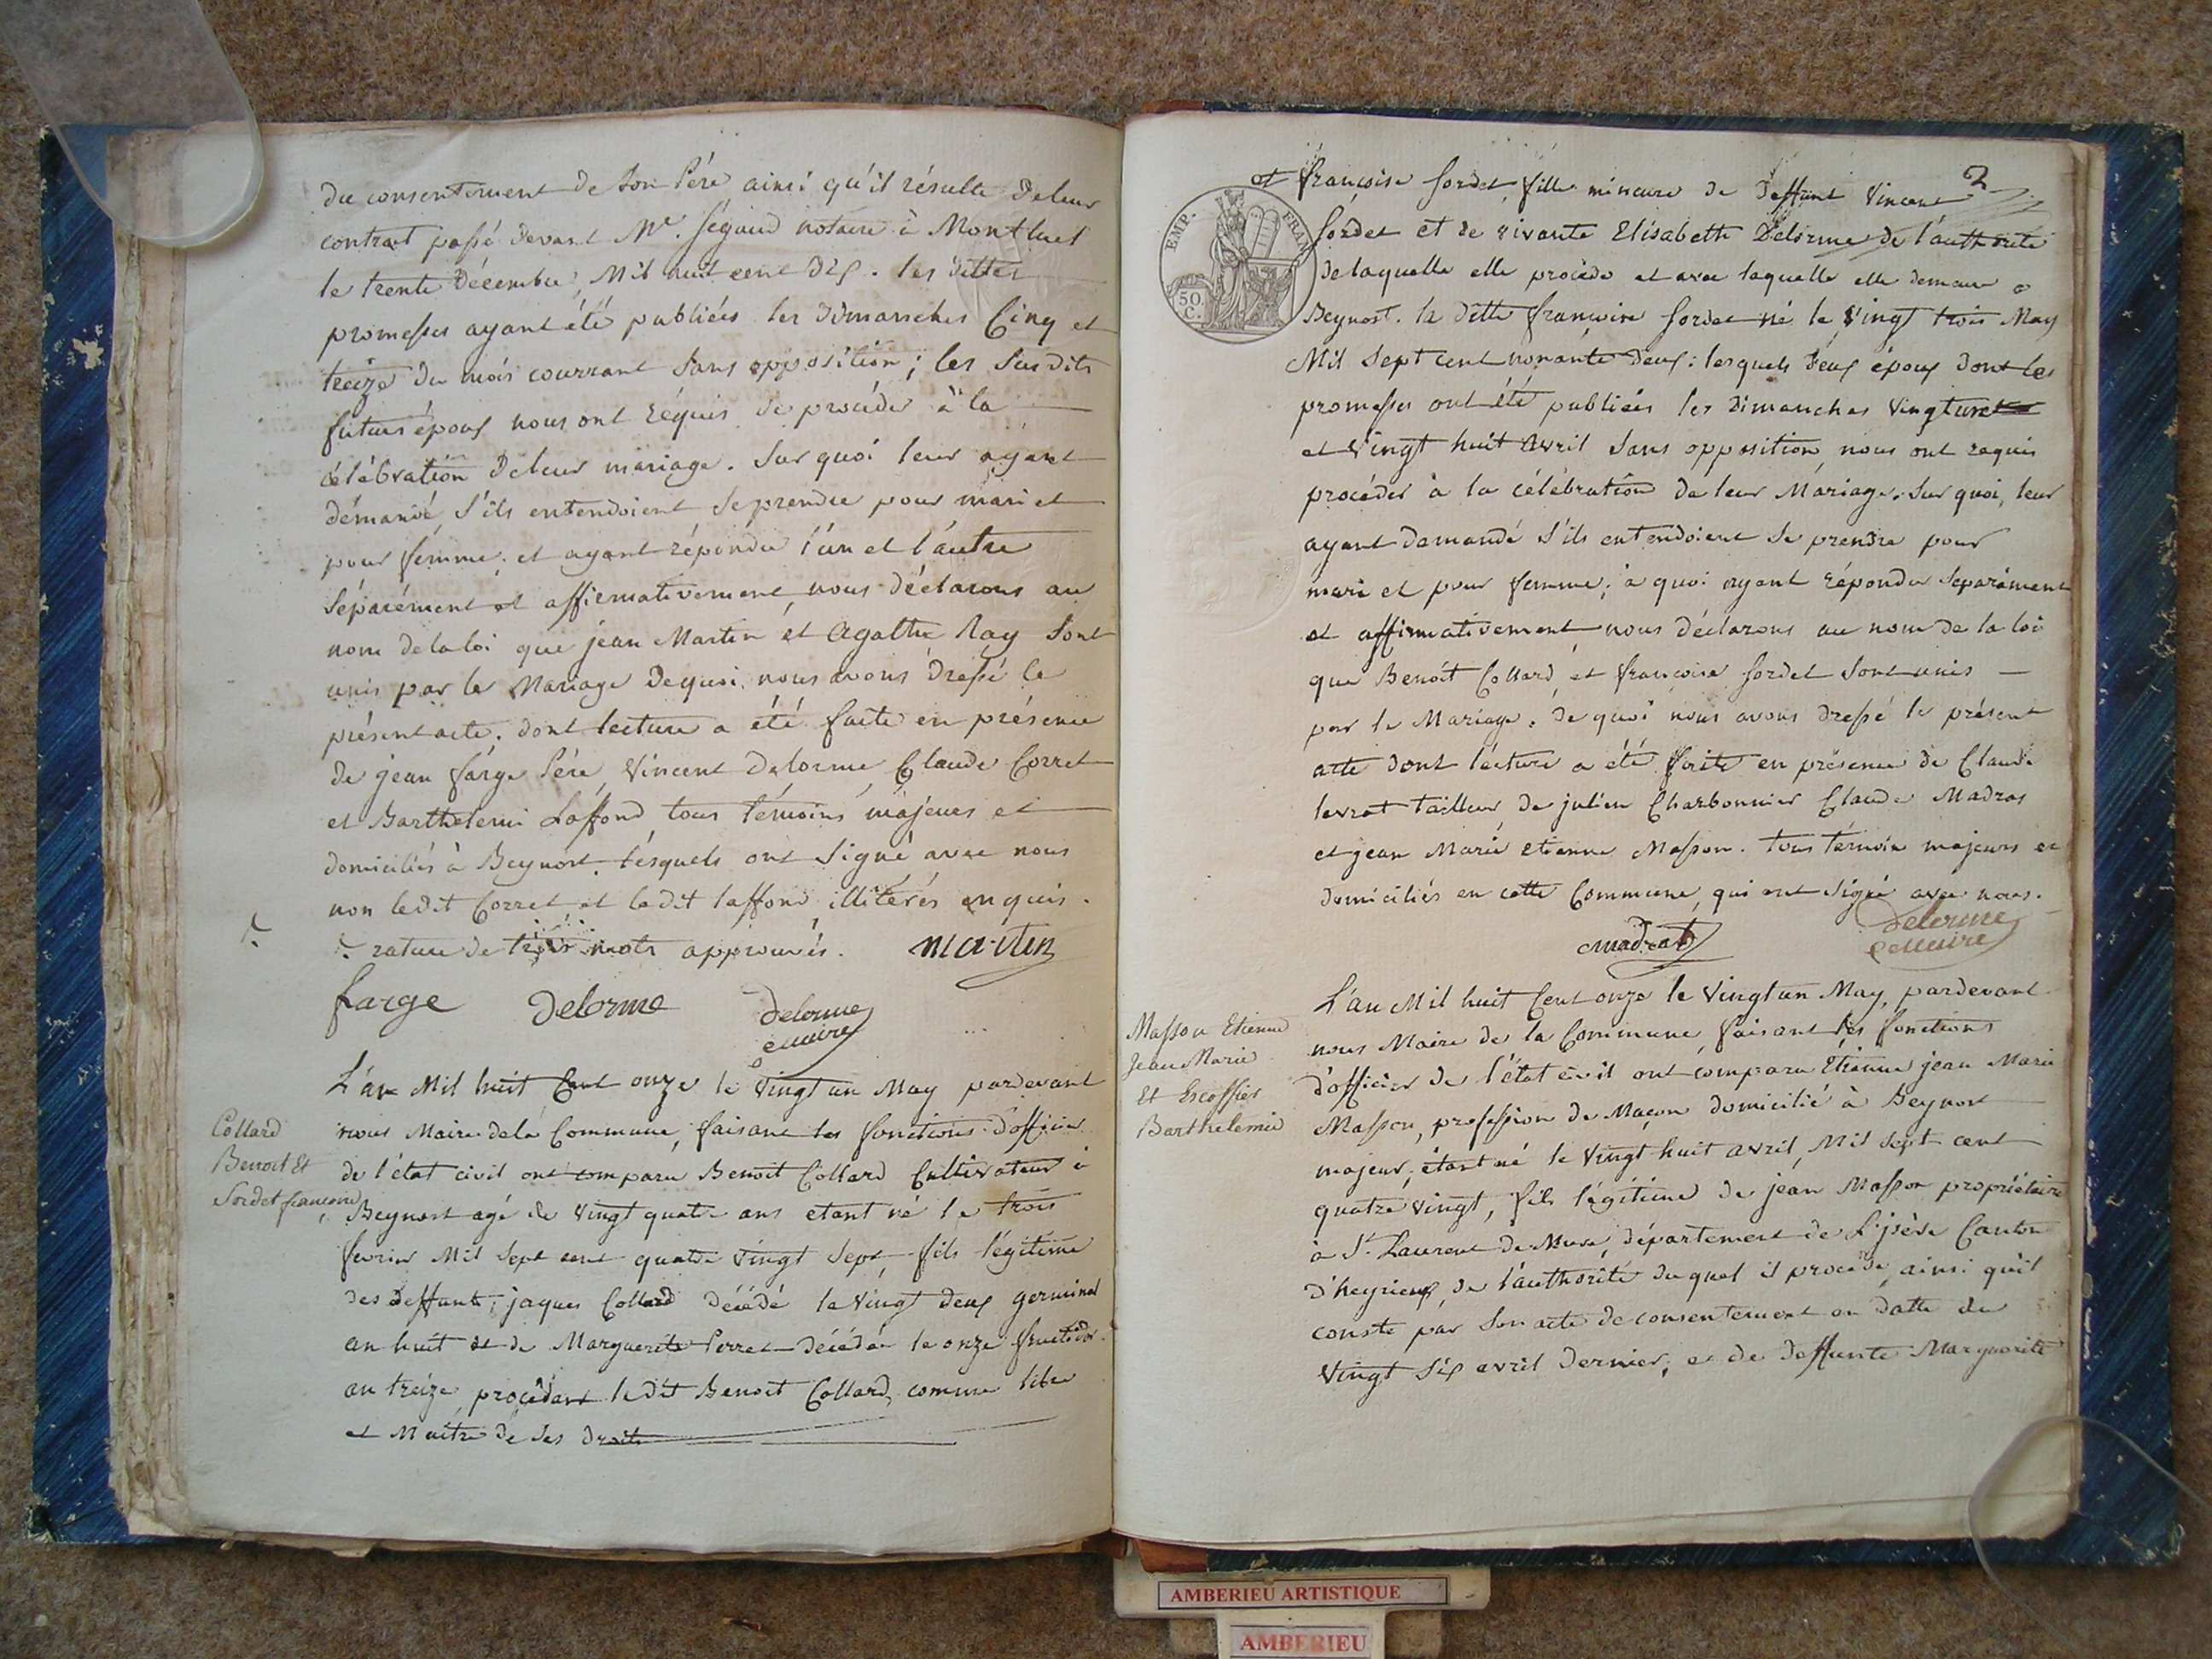 du consentement de son Pére ainsi qu'il résulte de leur
contrat passé devant Me. Ségaud notaire à Montluel
le trente Décembre, Mil huit cent dix. les dittes
promesses ayant été publiées les dimanches Cinq et
treize du mois courrant sans opposition; les susdits
futurs époux nous ont réquis de procéder à la
célébration de leur mariage. Sur quoi leur ayant
démandé s'ils entendoient se prendre pour mari et
pour femme. et ayant répondu l'un et l'autre
séparément et affirmativement, nous déclarons au
nom de la loi que jean Martin et Agathe Ray sont
unis par le Mariage de quoi nous avons dressé le
présent acte. dont lecture a été faite en présence
de jean farge Pére, Vincent Delorme, Claude Corret
et Barthelemi Laffond, tous témoins majeurs et
domiciliés à Beynost, lésquels ont signé avec nous
non ledit Corret et ledit laffond illitérés enquis.
rature de trois mots approuvés. martin
farge Delorme Delorme
maire
L'an Mil huit Cent onze le Vingt un May pardevant
Collard
Benoit Et
Sordet françoise
nous Maire de la Commune, faisant les fonctions d'officier
de l'état civil ont comparu Benoit Collard Cultivateur à
Beynost agé de vingt quatre ans etant né le trois
fevrier Mil sept cent quatre vingt sept, fils légitime
des deffunts, jaques Collard décédé le vingt deux germinal
an huit et de Marguerite Perret décédée le onze fructidor
an treize, procédant ledit Benoit Collard, comme libre
et Maître de ses droits
2
EMP. FRAN.
50. C.
et françoise sordet fille mineure de deffunt Vincent
sordet et de vivante Elisabeth Delorme de l'authorité
de laquelle elle procède et avec laquelle elle demeure a
Beynost. la ditte françoise sordet né le vingt trois May
Mil sept cent nonante deux: lesquels deux époux dont les
promesses ont été publiées les dimanches vingt un
et vingt huit Avril sans opposition, nous ont requis
procéder à la célébration de leur Mariage. Sur quoi, leur
ayant demandé s'ils entendoient se prendre pour
mari et pour femme; à quoi ayant répondu separément
et affirmativement nous déclarons au nom de la loi
que Benoit Collard et françoise sordet sont unis
par le Mariage. de quoi nous avons dressé le présent
acte dont lecture a été faite en présence de Claude
levrat tailleur, de julien Charbonnier Claude Madras
et jean Marie etienne Masson. tous témoin majeurs et
domiciliés en cette Commune, qui ont signé avec nous.
Delorme
maire
L'an Mil huit Cent onze le Vingt un May, pardevant
Masson Etienne
Jean Marie
Et Escoffier
Barthelemie
nous Maire de la Commune, faisant les fonctions
d'officier de l'état civil ont comparu Etienne jean Marie
Masson, profession de Maçon domicilié à Beynost
majeur, étant né le vingt huit avril, Mil sept cent
quatre vingt, fils légitime de jean Masson propriétaire
à St. Laurent de Mure, département de L'isère Canton
d'heyrieux, de l'authorité duquel il procède, ainsi qu'il
conste par son acte de consentement en datte du
Vingt six avril dernier; et de deffunte Marguerite
AMBERIEU ARTISTIQUE
AMBERIEU